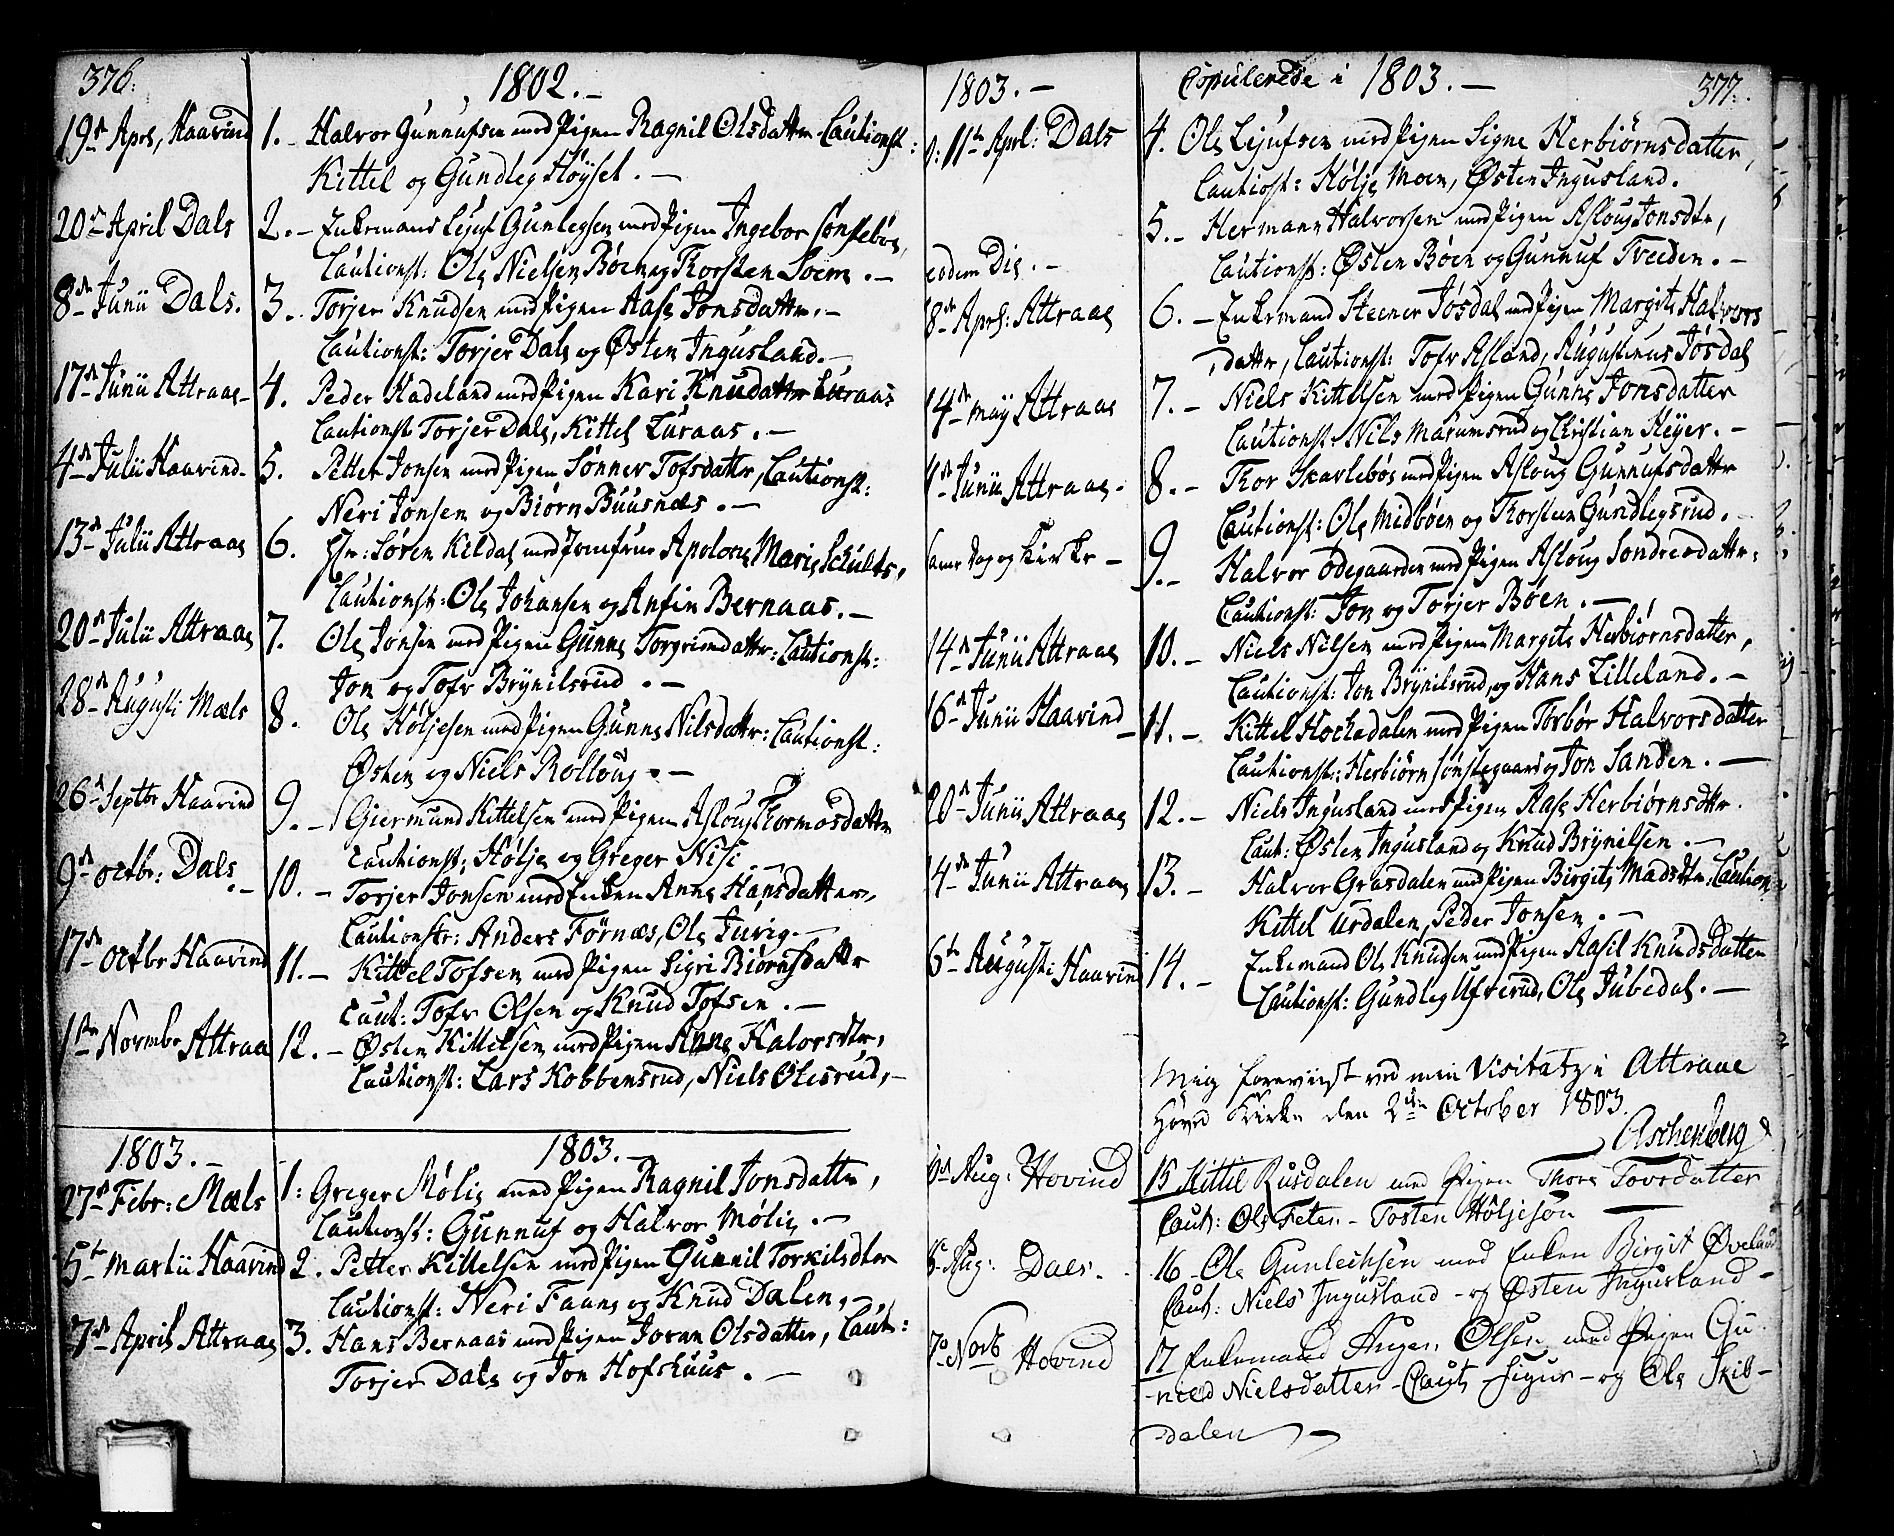 376.
1802. –
19de Apr, Haavind 1. – Halvor Gunnufsen med Pigen Ragnil Olsdatter Cautionst:
Kittel og Gundleg Høyset. –
20de April Dals 2. – Enkemand Lejuf Gunlegsen med Pigen Ingebor
Cautionst: Ole Nielsen Bøen og Torsten Soem. –
8de Junii Dals. 3. Torjer Knudsen med Pigen Aase Jonsdatter. –
Cautionst: Torjer Dale og Østen Ingusland. –
17de Junii Attraae – 4. Peder Hadeland med Pigen Kari Knudatter Luraas
Cautionst Torjer Dale, Kittel Luraas. –
4de Julii Haavind – 5. Petter Jonsen med Pigen Sønner Tofsdattr, Cautionst:
Neri Jonsen og Biørn Buusnæs. –
13de Julii Attraae 6. Hr: Søren Kildal med Jomfrue Apolone Marie Schults,
Cautionst: Ole Johansen og Anfin Bernaas. –
20de Julii Attraae 7. Ole Jonsen med Pigen Gunne Torgrimdattr: Cautionst:
Jon og Tofv Brynilsrud. –
28de Augusti Mæls 8. Ole Høljesen med Pigen Gunne Nilsdattr: Cautionst:
Østen og Niels Rolloug. –
26de Septbr Haavind 9. – Giermund Kittelsen med Pigen Asloug Tormosdattr
Cautionst: Hølje og Greger Nisi –
9de octbr: Dals. – 10. – Torjer Jonsen med Enken Anne Hansdatter,
Cautionstr: Anders Førnæs, Ole Jurig. –
17de Octbr Haavind 11. – Kittel Tofsen med Pigen Sigri Biørnsdattr
Caut: Tofv Olsen og Knud Tofsen. –
1ste Novembr Attraa 12. – Østen Kittelsen med Pigen Anne Halorsdtr,
Cautionst: Lars Kobbensrud, Niels Olesrud, –
1803. – 1803. –
27de Febr: Mæls 1: Greger Mølie med Pigen Ragnil Jonsdattr,
Cautionst: Gunnuf og Halvor Mølie. –
5te Martii Haavind 2. Petter Kittelsen med Pigen Gunnil Torkilsdter
Cautionst: Neri Faane og Knud Dalen, –
7de April Attraae 3. Hans Bernaas med Pigen Joran Olsdatter, Caut:
Torjer Dale og Jon Hofshuus. –
1803. – Copulerede i 1803. – 377.
11te Aprl: Dals 4. Ole Lejufsen med Pigen Signe Herbiørnsdatter,
Cautionst: Hølje Moen, Østen Ingusland.
eodem Die. – 5. – Hermann Halvorsen med Pigen Asloug Jonsdtr,
Cautionst: Østen Bøen og Gunnuf Tveeden. –
8de Aprl: Attraae 6. – Enkemand Steener Jøsdal med Pigen Margite Halvors
datter, Cautionst: Tofv Asland, Augustinus Jøsdal
14de may Attraae 7. – Niels Kittelsen med Pigen Gunne Jonsdatter
Cautionst. Nils Marumsrud og Christian Heyer. –
4de Junii Attraae. 8. – Tor Skavlebøs med Pigen Asloug Gunnufsdattr
Cautionst: Ole Midbøen og Torsten Gundlegsrud. –
Same Dag og Kirke – 9. – Halvor Ødegaarden med Pigen Asloug Sondresdattr:
Cautionst: Jon og Torjer Bøen. –
14de Junii Attraae 10. – Niels Nilsen med Pigen Margite Herbiørnsdatter,
Cautionst: Jon Brynilsrud, og Hans Lilleland. –
16de Junii Haavind – 11. – Kittel Hochedalen med Pigen Torbør Halvorsdatter
Cautionst: Herbiørn Sønstegaard og Jon Sanden. –
20de Junii Attraae 12. – Niels Ingusland med Pigen Aase Herbiørnsdtr.
Caut: Østen Ingusland og Knud Brynilsen. –
4de Junii Attraae 13. – Halvor Grasdalen med Pigen Birgite Madsdtr, Caution
Kittel Urdalen, Peder Jonsen. –
6te Augusti Haavind 14. – Enkemand Ole Knudsen med Pigen Aasil Knudsdatter
Cautionst: Gundleg Ufverud, Ole Jubedal. –
Mig foreviist ved min Visitatz i Attraae
Hoved Kirke den 2den October 1803.
Aschenberg
Aug: Hovind 15 Kittil Rusdalen med Pigen Thore Tovsdatter
Caut: Ole Feten – Tosten Höljesön –
Aug: Daes. 16 – Ole Gunleichsen med Enken Birgit Øveland
Caut: Niels Ingusland – og Østen Ingusland –
7de Novb Hovind 17 Enkemand Olsen med Pigen Gu-
nild Nielsdatter – Caut Sigur – og Ole Skib-
dalen –